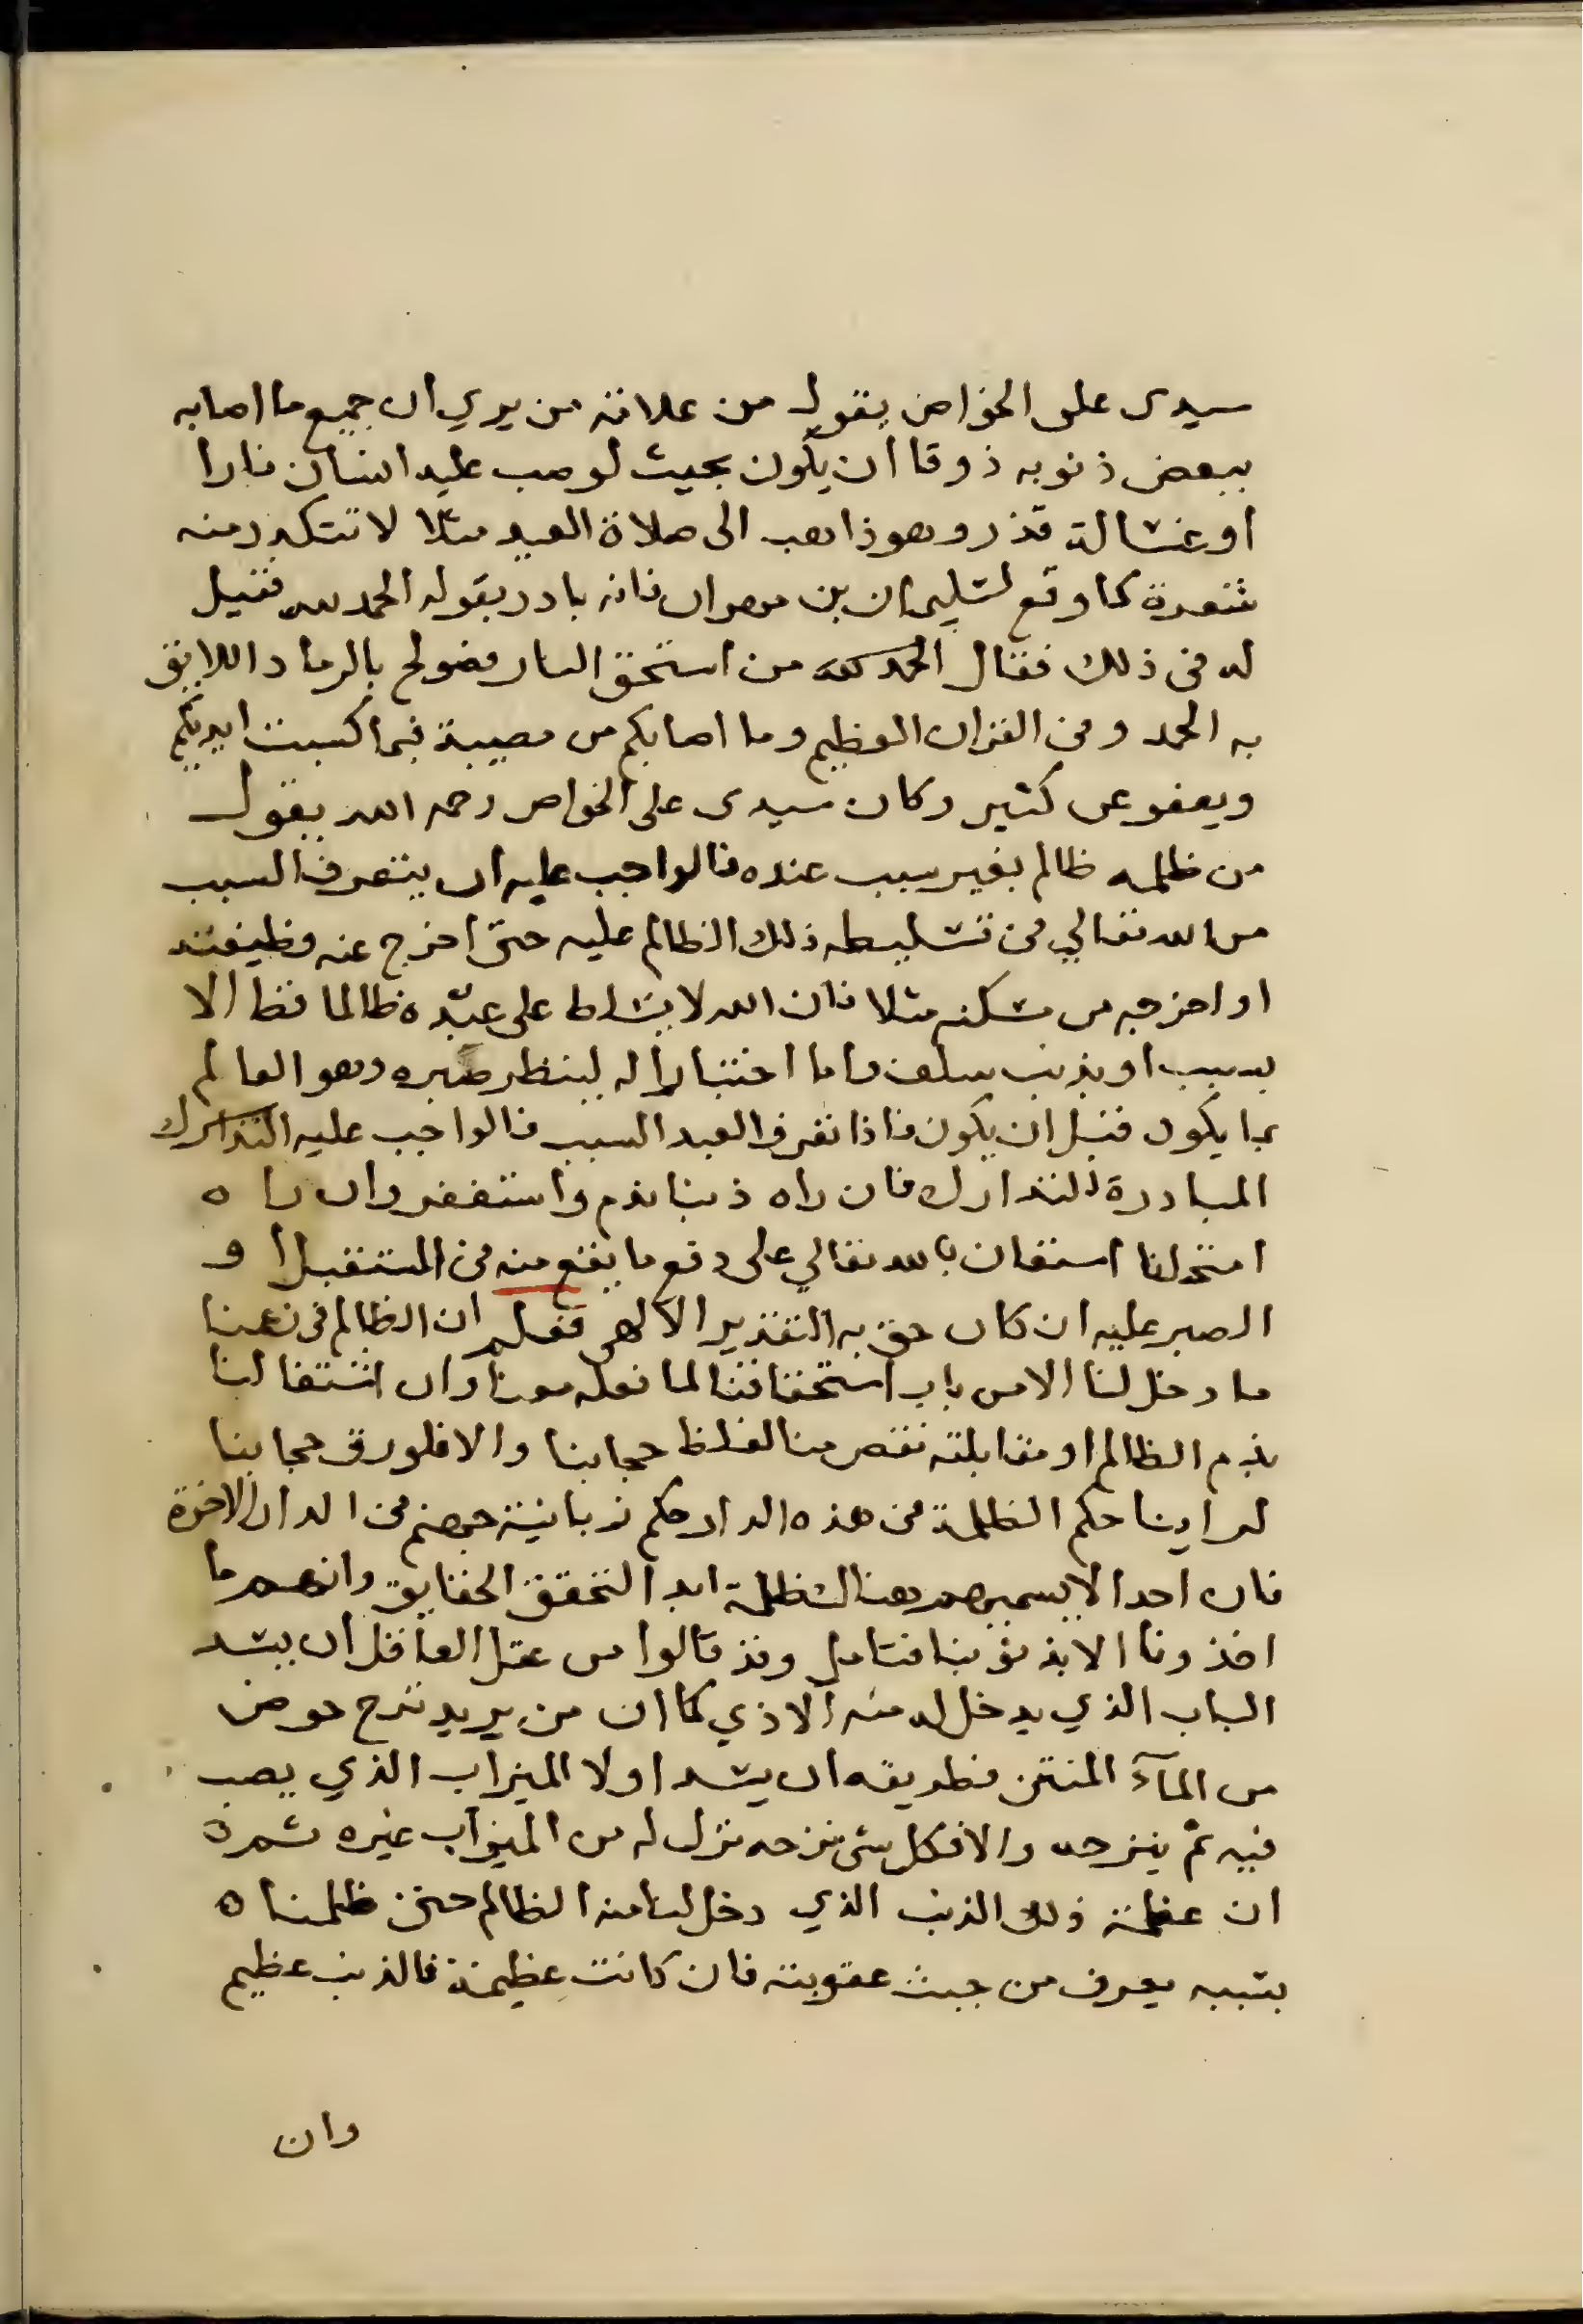 سيدى على الخواص يقول من علامة من يري ان جميع ما اصابه
ببعض ذنوبه ذوقا ان يكون بحيث لو صب عليه انسان نارا
او غسالة قذر وهو ذاهب الى صلاة العيد مثلا لا تتكدر منه
شعرة كما وقع لسليمان بن مهران فانه بادر بقوله الحمد لله فقيل
له فى ذلك فقال الحمد لله من استحق النار فصولح بالرماد اللايق
به الحمد وفى القران العظيم وما اصابكم من مصيبة فبما كسبت ايديكم
ويعفو عن كثير وكان سيدى على الخواص رحمه الله يقول
من ظلمه ظالم بغير سبب عنده فالواجب عليه ان يتعرف السبب
من الله تعالي فى تسليطه ذلك الظالم عليه حتى اخرج عنه وظيفته
او اخرجه من مسكنه مثلا فان الله لا يسلط على عبده ظالما قط الا
بسبب او بذنب سلف واما اختبارا له لينظر صبره وهو العالم
بما يكون قبل ان يكون فاذا تعرف العبد السبب فالواجب عليه التدارك
المبادرة للتدارك فان راه ذنبا ندم واستغفر وان راه
امتحانا استعان بالله تعالي على دفع ما يقع منه فى المستقبل او
الصبر عليه ان كان حق به التقدير الالهى فعلم ان الظالم فى زعمنا
ما دخل لنا الا من باب استحقاقنا لما فعله معنا وان اشتغالنا
بذم الظالم او مقابلته نقص منا لغلظ حجابنا والا فلو رق حجابنا
لراينا حكم الظلمة فى هذه الدار حكم زبانية جهنم فى الدار الاخرة
فان احدا لا يسميهم هناك ظلمة ابدا لتحقق الحقايق وانهم ما
اخذونا الا بذنوبنا فتامل وقد قالوا من عقل العاقل ان يسد
الباب الذي يدخل له منه الاذي كما ان من يريد نزح حوض
من المآء المنتن فطريقه ان يسد اولا الميزاب الذي يصب
فيه ثم ينزحه والا فكل شى نزحه نزل له من الميزاب غيره ثم
ان عظمة ذلك الذنب الذي دخل لنا منه الظالم حتى ظلمنا
بسببه يعرف من حيث عقوبته فان كانت عظيمة فالذنب عظيم
وان